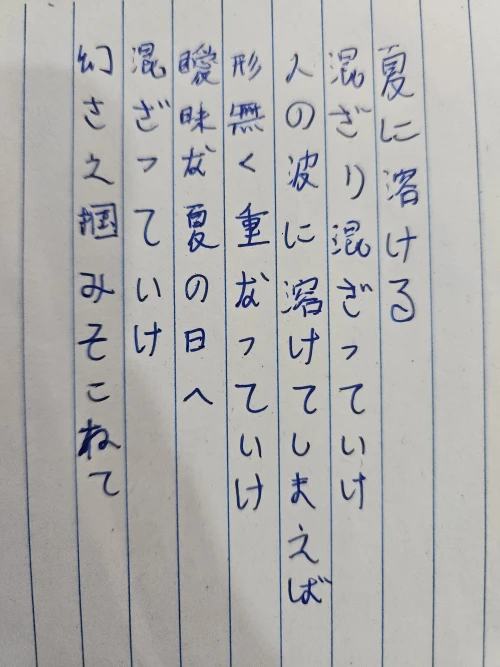 夏に溶ける
混ざり混ざっていけ
人の波に溶けてしまえば
形無く重なっていけ
曖昧な夏の日へ
混ざっていけ
幻さえ掴みそこねて